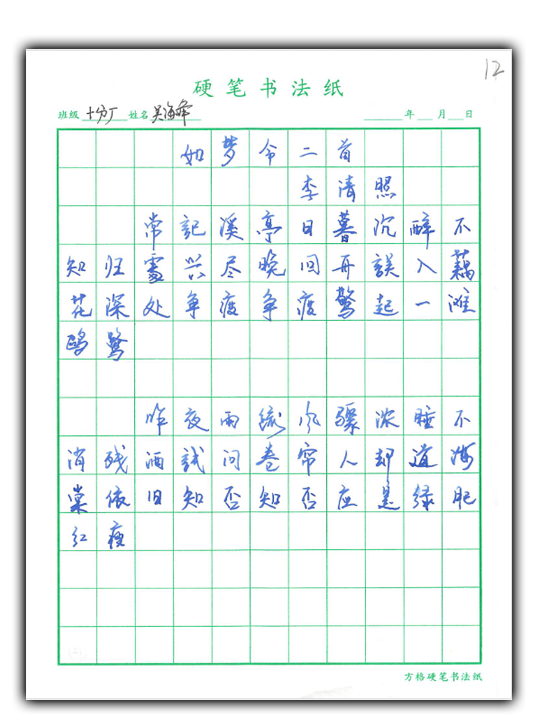 12
硬笔书法纸
班级 十分厂 姓名 吴海峰 年 月 日
如梦令二首
李清照
常記溪亭日暮沉醉不
知归路兴尽晚回舟誤入藕
花深处争渡争渡驚起一滩
鸥鹭
昨夜雨疏风骤浓睡不
消残酒試问卷帘人却道海
棠依旧知否知否应是绿肥
红瘦
方格硬笔书法纸